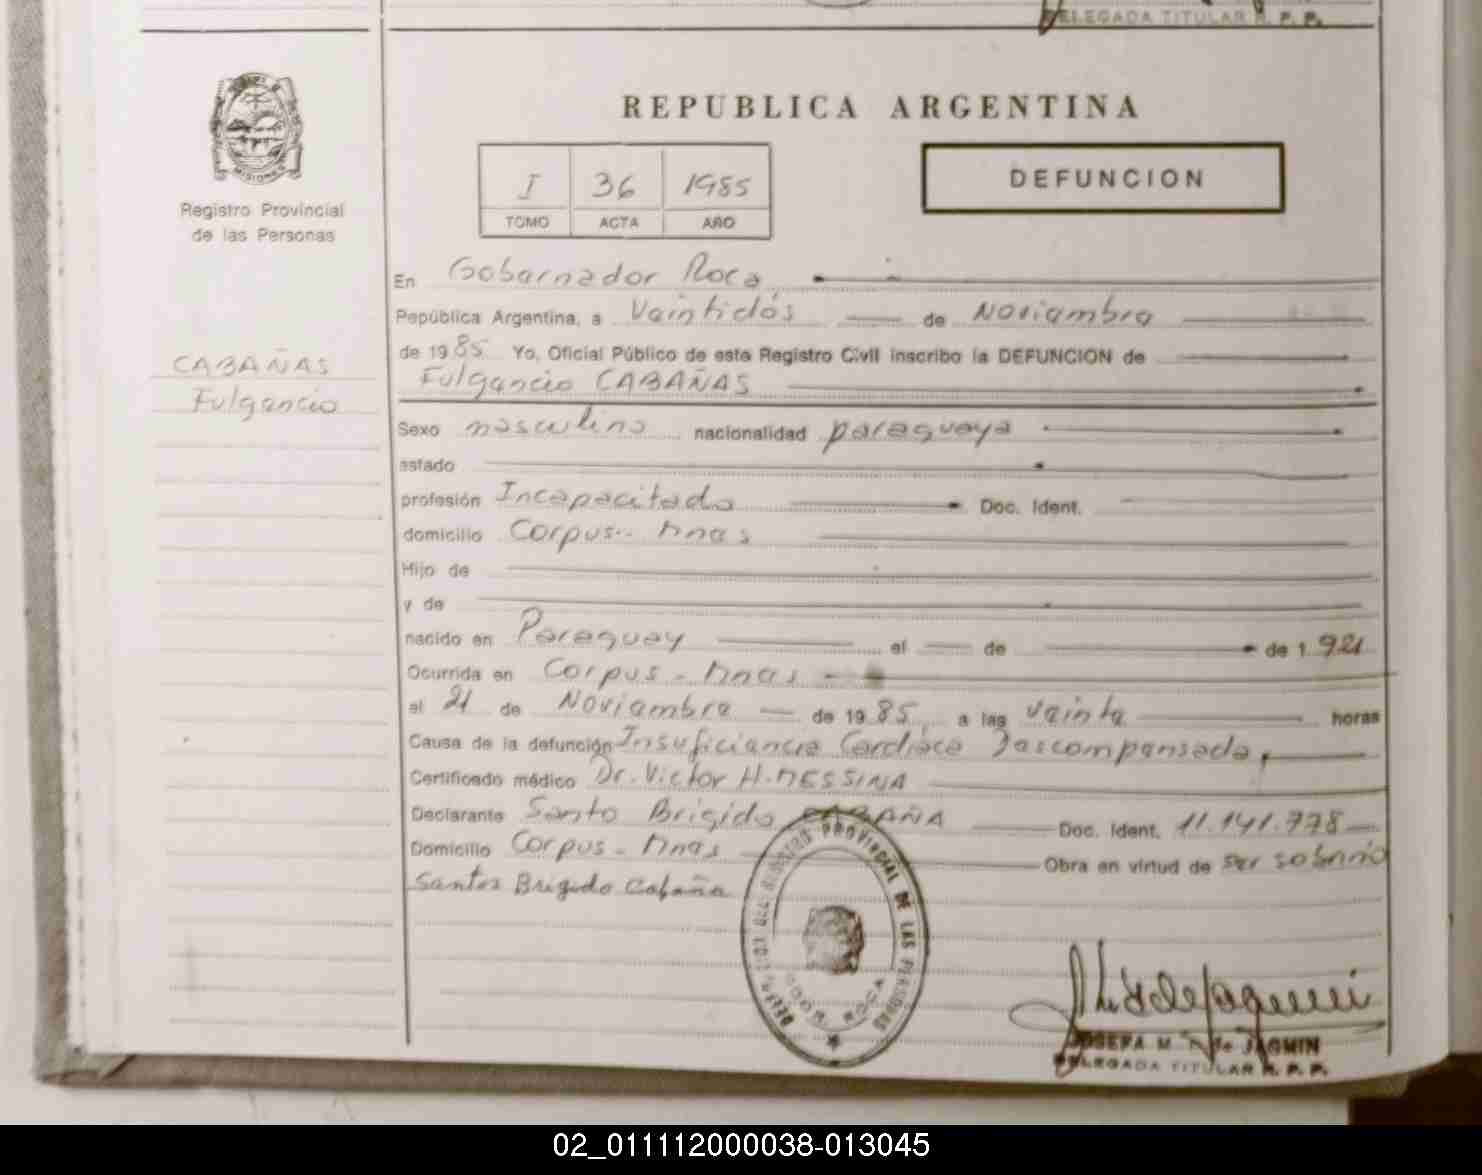 DELEGADA TITULAR R. P. P.
MISIONES
Registro Provincial
de las Personas
CABAÑAS
Fulgencio
REPUBLICA ARGENTINA
I 36 1985
TOMO ACTA AÑO
DEFUNCION
En Gobernador Roca
República Argentina, a Veintidós de Noviembre
de 1985 Yo, Oficial Público de este Registro Civil inscribo la DEFUNCION de
Fulgencio CABAÑAS
Sexo masculino nacionalidad paraguaya
estado
profesión Incapacitado Doc. Ident.
domicilio Corpus - Mnes
Hijo de
y de
nacido en Paraguay el de de 1921
Ocurrida en Corpus - Mnes
el 21 de Noviembre de 1985 a las veinte horas
Causa de la defunción Insuficiencia Cardiaca Descompensada
Certificado médico Dr. Victor H. MESSINA
Declarante Santo Brigido CABAÑA Doc. Ident. 11.141.778
Domicilio Corpus - Mnes Obra en virtud de ser sobrino
Santos Brigido Cabaña
REGISTRO PROVINCIAL DE LAS PERSONAS
GDOR. ROCA
JOSEFA M. de JAQMIN
DELEGADA TITULAR R. P. P.
02_011112000038-013045